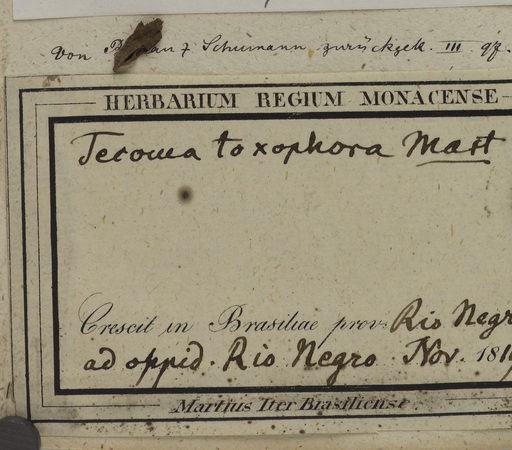 Von Schumann zurückgek. III 97.
HERBARIUM REGIUM MONACENSE
Tecoma toxophora Mart
Crescit in Brasiliae prov. Rio Negr
ad oppid. Rio Negro Nov. 181
Martius Iter Brasiliense.